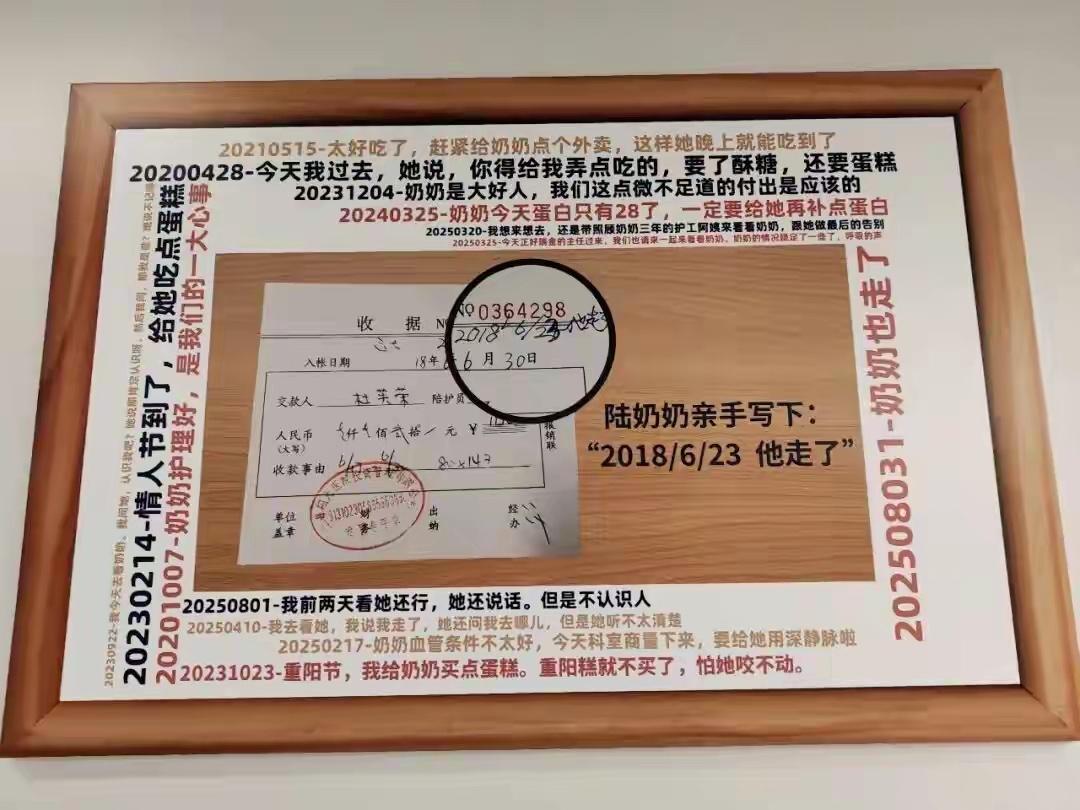 20210515-太好吃了，赶紧给奶奶点个外卖，这样她晚上就能吃到了
20200428-今天我过去，她说，你得给我弄点吃的，要了酥糖，还要蛋糕
20231204-奶奶是大好人，我们这点微不足道的付出是应该的
20240325-奶奶今天蛋白只有28了，一定要给她再补点蛋白
20250320-我想来想去，还是带照顾奶奶三年的护工阿姨来看看奶奶，跟她做最后的告别
20250325-今天正好瑞金的主任过来，我们也请来一起来看看奶奶，奶奶的情况稳定了一些了，呼吸的声
20230922-我今天去看奶奶，我问她，认识我吧？她说那肯定认识呀，然后我问，那我是谁？她说不记得
20230214-情人节到了，给她吃点蛋糕
20201007-奶奶护理好，是我们的一大心事
№0364298
收 据
2018 6/23 他走了
入帐日期 18年 6月 30日
交款人 陪护员
人民币
(大写)
仟 佰 拾 元 ¥
报销联
收款事由 80×147
单位
盖章
财
务
出
纳
经
办
陆奶奶亲手写下：
“2018/6/23 他走了”
20250831-奶奶也走了
20250801-我前两天看她还行，她还说话。但是不认识人
20250410-我去看她，我说我走了，她还问我去哪儿，但是她听不太清楚
20250217-奶奶血管条件不太好，今天科室商量下来，要给她用深静脉啦
20231023-重阳节，我给奶奶买点蛋糕。重阳糕就不买了，怕她咬不动。